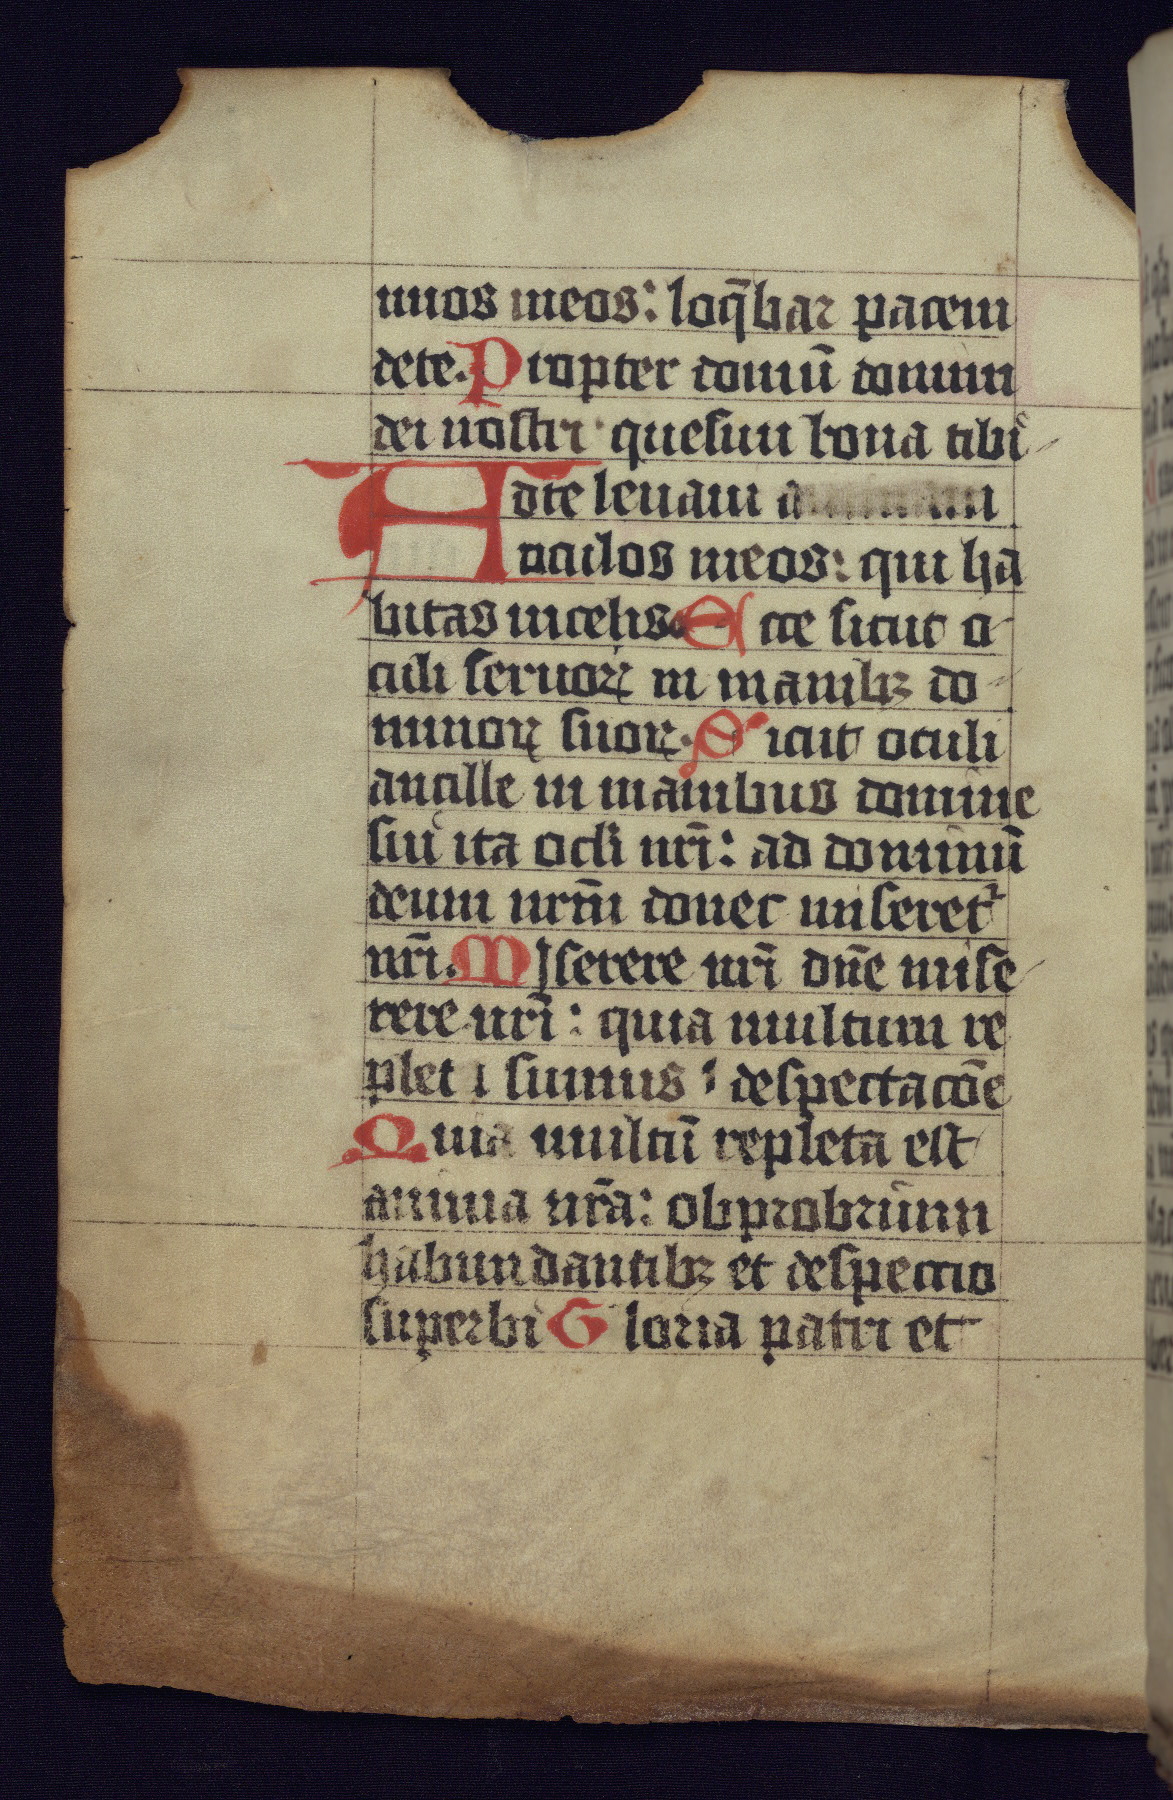 mos meos: loq̄bar pacem
dete. Propter domū domini
dei nostri quesiui bona tibi
Adte leuaui
oculos meos: qui ha
bitas incelis. Ecce sicut o
culi seruoꝝ in manibꝫ do
minoꝝ suoꝝ. Sicut oculi
ancille in manibus domine
sue ita ocli nr̄i: ad dominū
deum nrm̄ donec miseret᷑
nr̄i. Miserere nr̄i dn̄e mise
rere nr̄i: quia multum re
pleti sumus: despectacōe
Quia multū repleta est
anima nr̄a: obprobrium
habundantibꝫ et despectio
superbi Gloria patri et